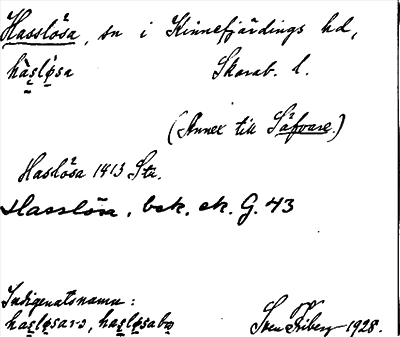 Hasslösa, sn i Kinnefjärdings hd,
hàslø̀sa Skarab. l.
(Annex till Säfvare.)
Haslösa 1413 Sta.
Hasslösa, bek. ek. G. 43
Indigenatsnamn:
hasløsarə, hasløsabo Sven Friberg 1928.